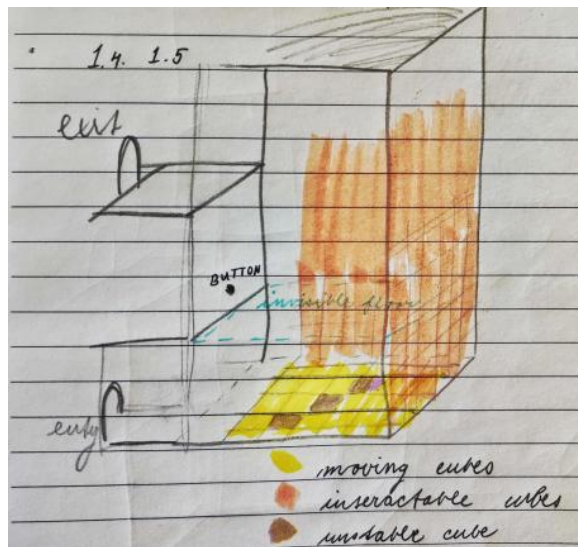 1.4. 1.5
exit
BUTTON
invisible floor
enty
moving cubes
inseractable cubes
unstable cube